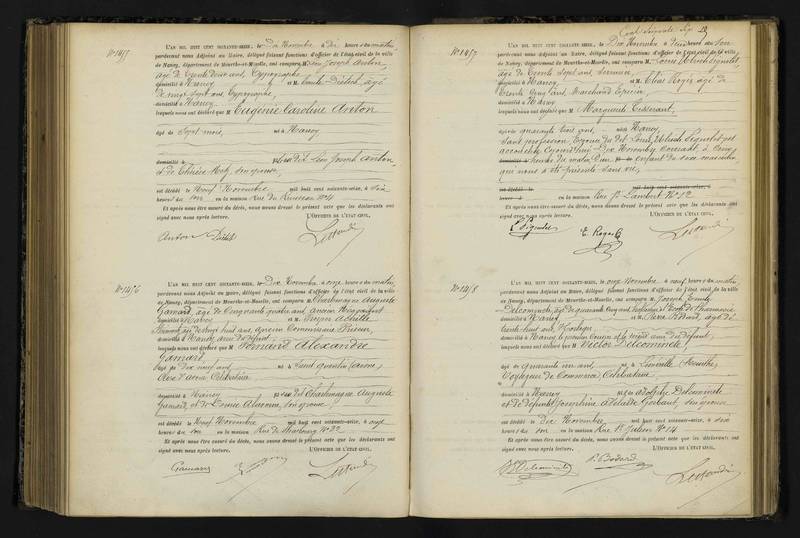 N° 1455
L'AN MIL HUIT CENT SOIXANTE-SEIZE, le Dix Novembre à dix heures du matin,
pardevant nous Adjoint au Maire, délégué faisant fonctions d'officier de l'état civil de la ville
de Nancy, département de Meurthe-et-Moselle, ont comparu M. Léon Joseph Anton,
âgé de trente deux ans, Typographe,
domicilié à Nancy et M. Emile Dietsch, âgé
de vingt sept ans, Typographe,
domicilié à Nancy,
lesquels nous ont déclaré que M Eugénie Caroline Anton
âgé de Sept mois, né à Nancy
domicilié à fille du dit Léon Joseph Anton,
et de Son épouse,
est décédé le Neuf Novembre mil huit cent soixante-seize, à Six
heures du soir en la maison Rue du Ruisseau N° 4
Et après nous être assuré du décès, nous avons dressé le présent acte que les déclarants ont
signé avec nous après lecture. L'OFFICIER DE L'ÉTAT CIVIL,
Anton Dietsch
N° 1456
L'AN MIL HUIT CENT SOIXANTE-SEIZE, le Dix Novembre à onze heures du matin,
pardevant nous Adjoint au Maire, délégué faisant fonctions d'officier de l'état civil de la ville
de Nancy, département de Meurthe-et-Moselle, ont comparu M. Charlemagne Auguste
Gamard, âgé de Cinquante quatre ans, ancien
domicilié à et M. Achille
âgé de vingt huit ans, ancien Commissaire
domicilié à Nancy, ami du défunt
lesquels nous ont déclaré que M Fernand Alexandre
Gamard,
âgé de dix neuf ans né à Saint Quentin (Aisne),
Célibataire
domicilié à Nancy fils du dit Charlemagne Auguste
Gamard, et de Louise Son épouse,
est décédé le Neuf Novembre mil huit cent soixante-seize, à onze
heures du soir en la maison Rue de Strasbourg N° 32
Et après nous être assuré du décès, nous avons dressé le présent acte que les déclarants ont
signé avec nous après lecture. L'OFFICIER DE L'ÉTAT CIVIL,
Gamard
N° 1457
L'AN MIL HUIT CENT SOIXANTE-SEIZE, le Dix Novembre à deux heures du soir
pardevant nous Adjoint au Maire, délégué faisant fonctions d'officier de l'état civil de la ville
de Nancy, département de Meurthe-et-Moselle, ont comparu M. Louis Ulrich
âgé de Trente Sept ans,
domicilié à Nancy et M. Elias Roger âgé de
Trente Cinq ans, Marchand Epicier,
domicilié à Nancy
lesquels nous ont déclaré que M Marguerite Tisserant,
âgée de quarante trois ans, née à Nancy
Sans profession, Epouse du dit Louis Ulrich est
accouchée Cejourd'hui Dix Novembre Courant, à onze
heures du matin, d'un enfant du sexe masculin
que nous a été présenté Sans vie,
est décédé le mil huit cent soixante-seize, à
heures du en la maison Rue St Lambert N° 12
Et après nous être assuré du décès, nous avons dressé le présent acte que les déclarants ont
signé avec nous après lecture. L'OFFICIER DE L'ÉTAT CIVIL,
E. Roger
N° 1458
L'AN MIL HUIT CENT SOIXANTE-SEIZE, le onze Novembre à neuf heures du matin
pardevant nous Adjoint au Maire, délégué faisant fonctions d'officier de l'état civil de la ville
de Nancy, département de Meurthe-et-Moselle, ont comparu M. Joseph Emile
Delcominète, âgé de quarante Cinq ans, Professeur à l'Ecole de Pharmacie
domicilié à Nancy et M. Pierre Bodard, âgé de
trente huit ans, Horloger,
domicilié à Nancy le premier Cousin et le second ami du défunt,
lesquels nous ont déclaré que M Victor Delcominète
âgé de quarante un ans né à Lunéville (Meurthe),
Voyageur de Commerce, Célibataire
domicilié à Nancy fils de Adolphe Delcominète
et de défunte Joséphine Adélaïde Son épouse
est décédé le Dix Novembre mil huit cent soixante-seize, à six
heures du soir en la maison Rue St Julien N° 14
Et après nous être assuré du décès, nous avons dressé le présent acte que les déclarants ont
signé avec nous après lecture. L'OFFICIER DE L'ÉTAT CIVIL,
Delcominète P. Bodard